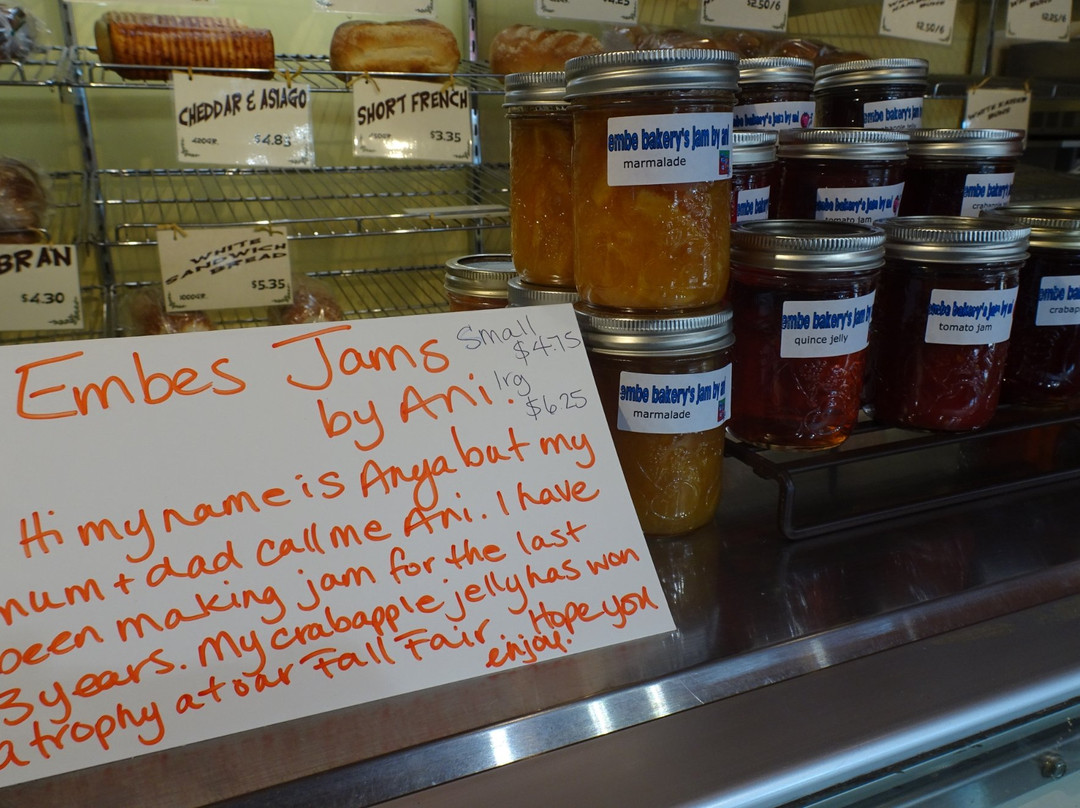 $2.50/6
$2.50/6
CHEDDAR & ASIAGO
400GR.
$4.83
SHORT FRENCH
$3.35
BRAN
$4.30
WHITE
SANDWICH
BREAD
$5.35
embe bakery's jam by ani
marmalade
embe bakery's jam by ani
embe bakery's jam by ani
tomato jam
embe bakery's jam by
quince jelly
embe bakery's jam by
tomato jam
embe
crabap
embe bakery's jam by
marmalade
Embes Jams
by Ani!
Small
$4.75
lrg
$6.25
Hi my name is Anya but my
mum + dad call me Ani. I have
been making jam for the last
3 years. My crabapple jelly has won
a trophy at our Fall Fair. Hope you
enjoy.